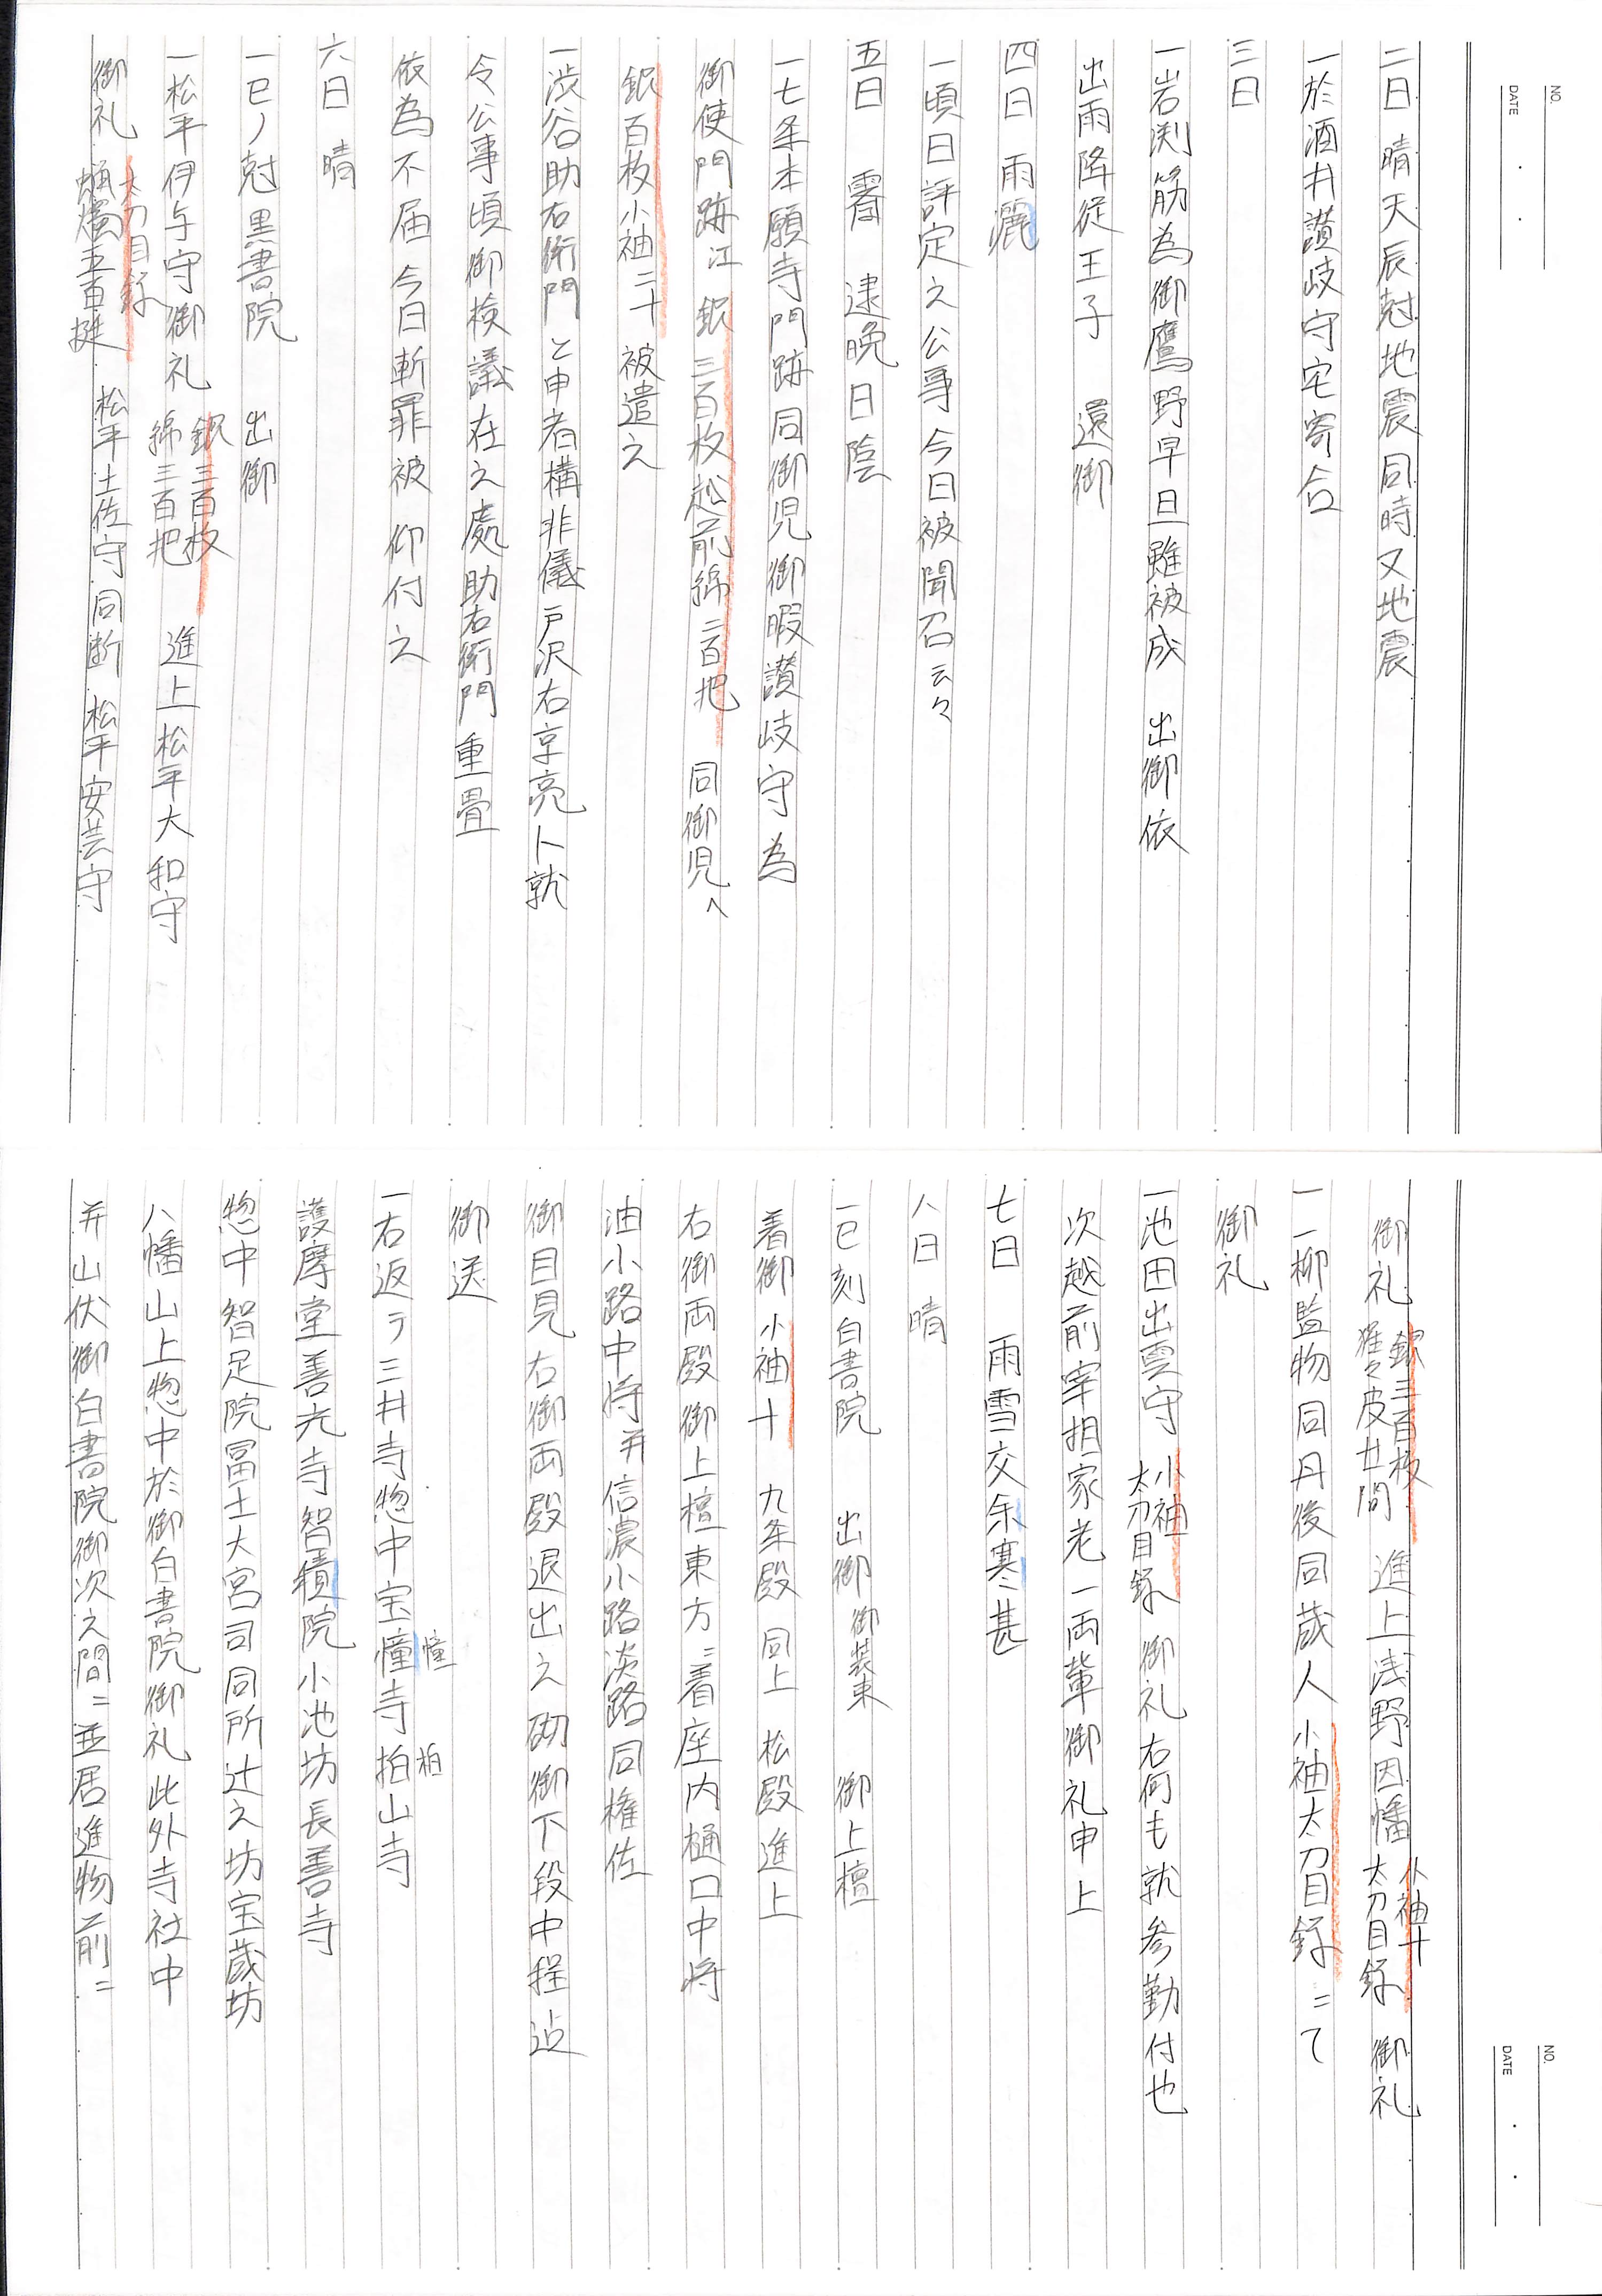 NO.
DATE
二日 晴天辰尅地震同時又地震
一於酒井讃岐守宅寄合
三日
一岩渕筋為御鷹野早旦雖被成 出御依
出雨降従王子 還御
四日 雨灑
一頃日評定之公事今日被聞召云々
五日 霽 逮晩日陰
一七条本願寺門跡同御児御暇讃岐守為
御使門跡江 銀三百枚越前綿二百把 同御児へ
銀百枚小袖二十 被遣之
一渋谷助右衛門と申者構非儀戸沢右京亮ト就
令公事頃御検議在之處助右衛門重畳
依為不届今日斬罪被 仰付之
六日 晴
一巳ノ尅黒書院 出御
一松平伊与守御礼 銀三百枚 綿三百把 進上松平大和守
御礼 太刀目録 蝋燭五百挺 松平土佐守同断 松平安芸守
NO.
DATE
御礼 銀三百枚 猩々皮廿間 進上浅野因幡 小袖十 太刀目録 御礼
一一柳監物同丹後同蔵人 小袖太刀目録ニて
御礼
一池田出雲守 小袖 太刀目録 御礼右何も就参勤付也
次越前宰相家老一両輩御礼申上
七日 雨雪交余寒甚
八日 晴
一巳刻白書院 出御 御装束 御上檀
着御 小袖十 九条殿 同上 松殿進上
右御両殿御上檀東方ニ着座内樋口中将
油小路中将并信濃小路淡路同権佐
御目見右御両殿退出之砌御下段中程迠
御送
一右返テ三井寺惣中宝憧寺拍山寺
憧 柏
護摩堂善光寺智積院小池坊長善寺
惣中智足院冨士大宮司同所辻之坊宝蔵坊
八幡山上惣中於御白書院御礼此外寺社中
并山伏御白書院御次之間ニ並居進物前ニ